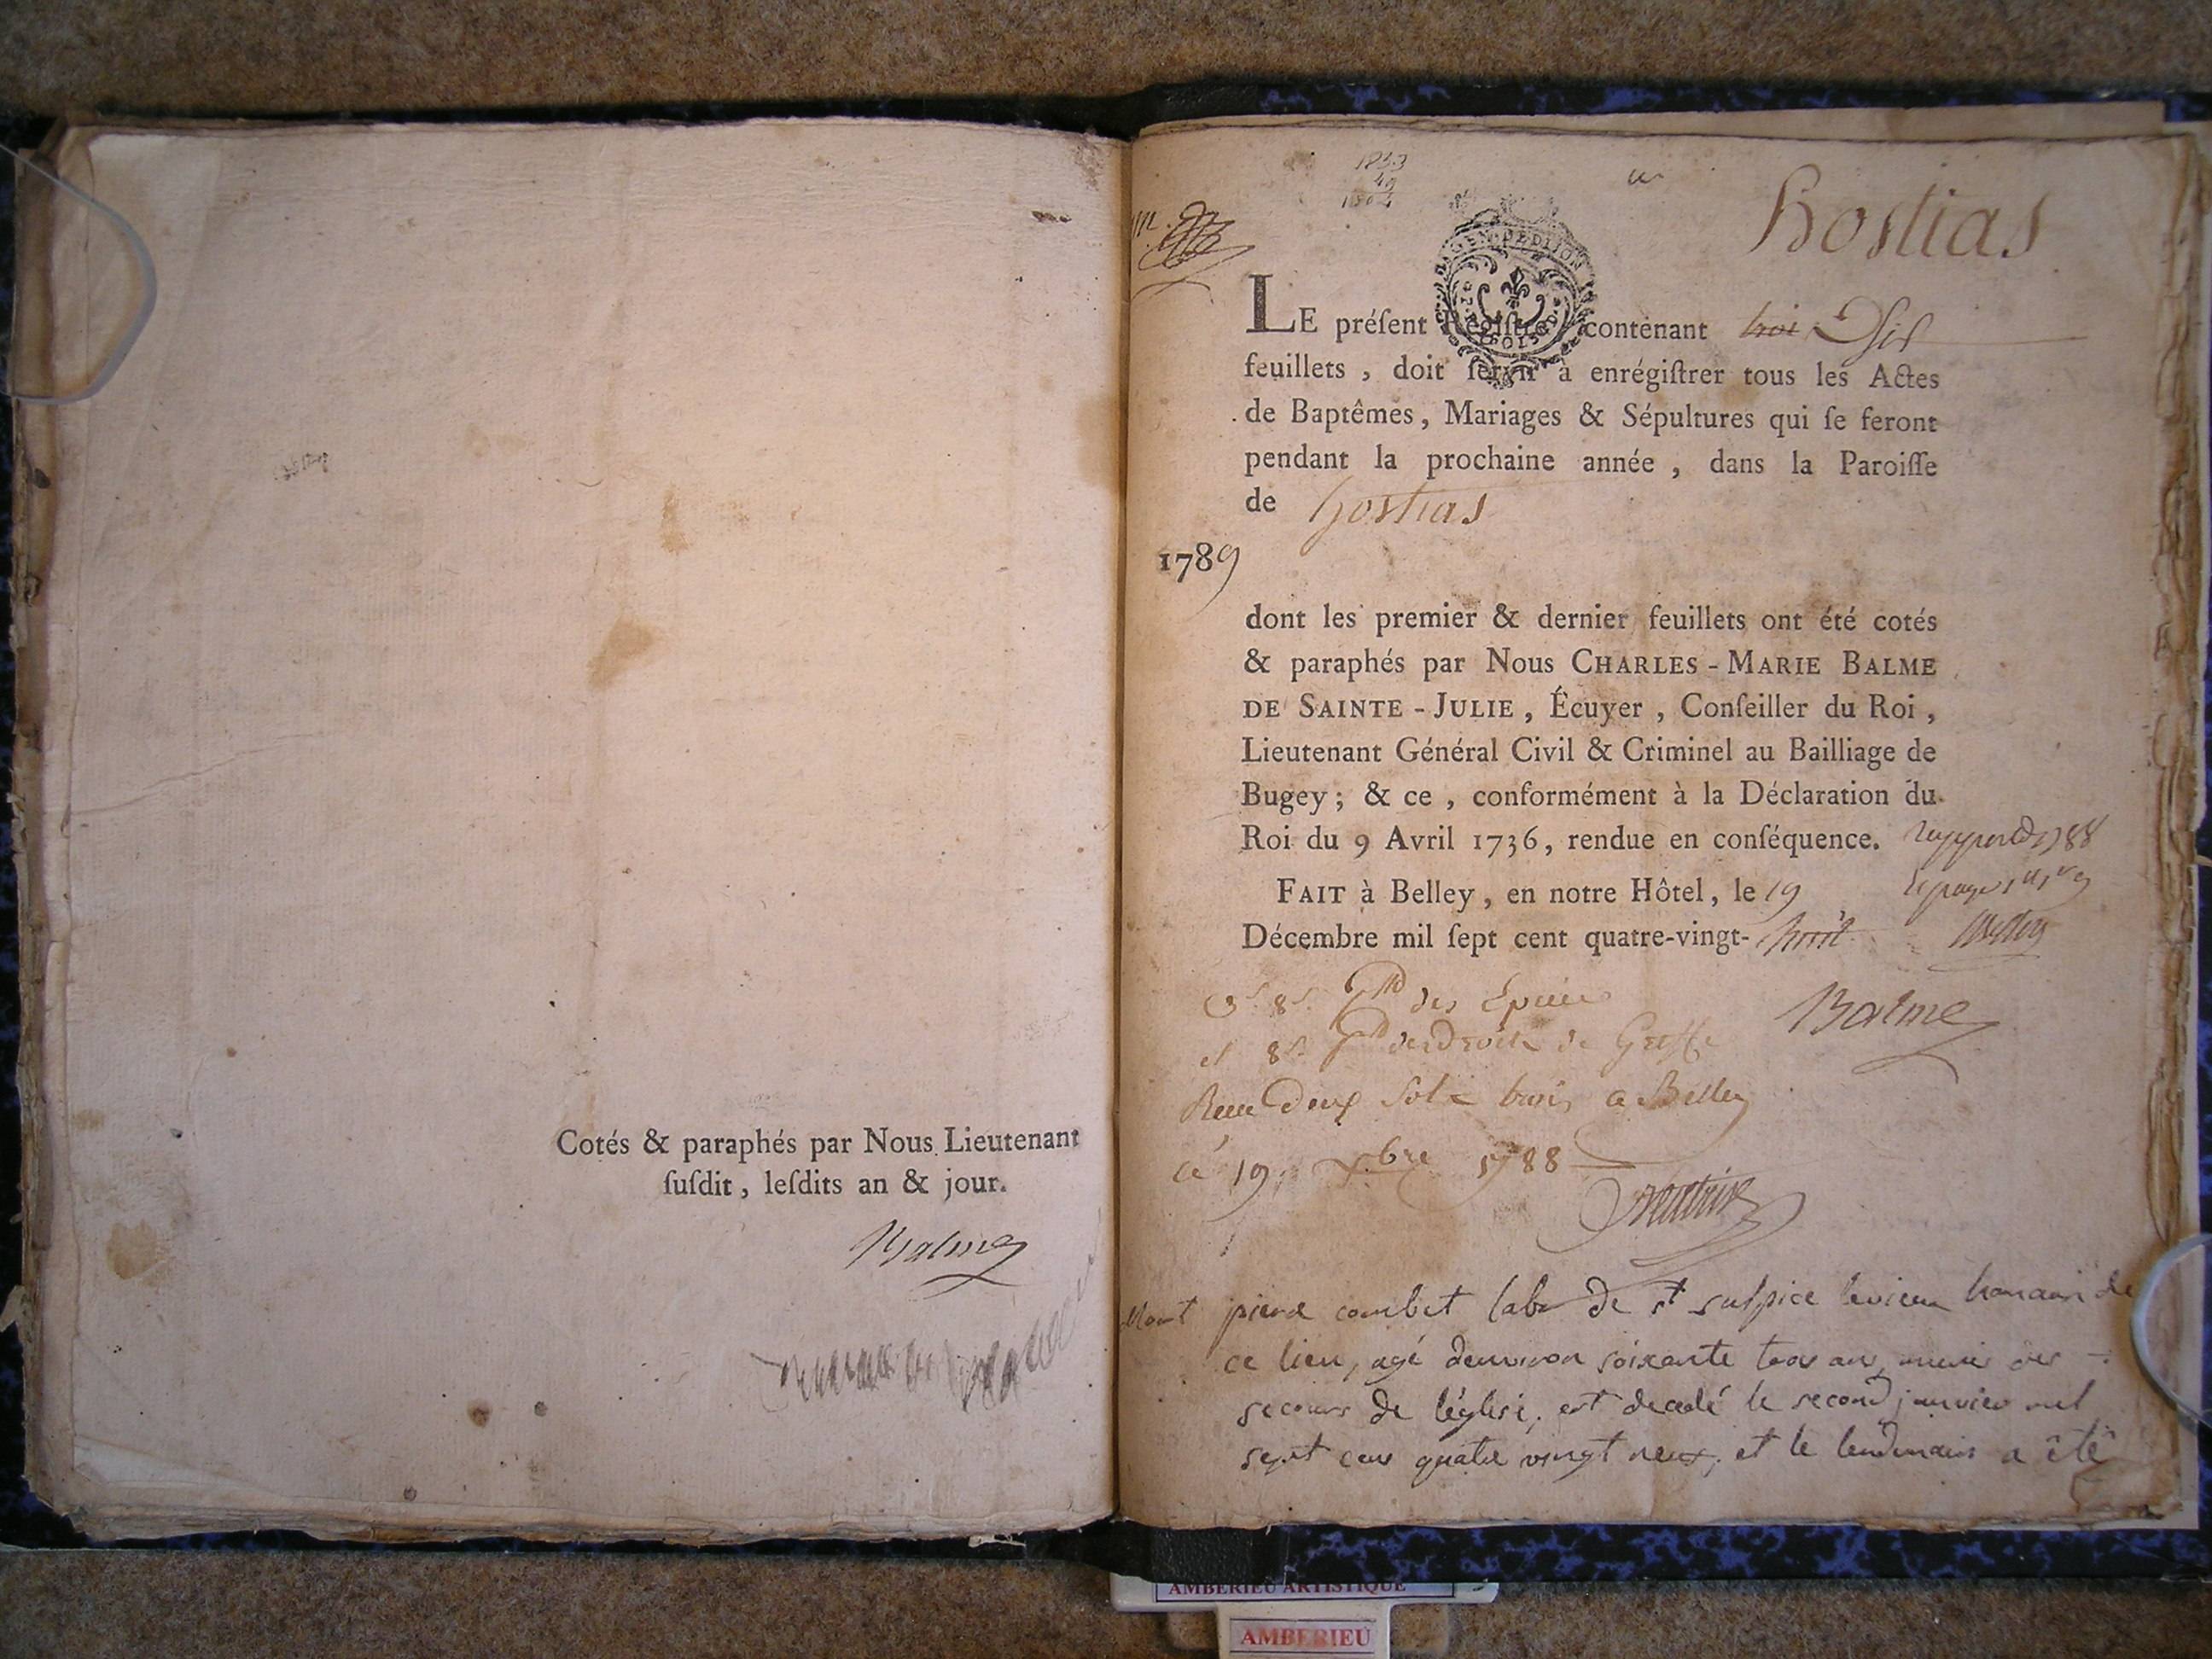 Cotés & paraphés par Nous Lieutenant
ſuſdit, leſdits an & jour.
Balme
hostias
LE préſent Regiſtre contenant troi Six
feuillets, doit ſervir à enrégiſtrer tous les Actes
de Baptêmes, Mariages & Sépultures qui ſe feront
pendant la prochaine année, dans la Paroiſſe
de hostias
1789
dont les premier & dernier feuillets ont été cotés
& paraphés par Nous CHARLES-MARIE BALME
DE SAINTE-JULIE, Écuyer, Conſeiller du Roi,
Lieutenant Général Civil & Criminel au Bailliage de
Bugey; & ce, conformément à la Déclaration du
Roi du 9 Avril 1736, rendue en conſéquence.
FAIT à Belley, en notre Hôtel, le 19
Décembre mil ſept cent quatre-vingt-huit
Balme
des
et 8s de Greffe
deux Sols a Belley
ce 19 xbre 1788
Mort pierre combet labr de st sulpice le vieux de
ce lieu, agé denviron soixante trois ans, muni des
secours de l'église, est decedé le second janvier mil
sept cens quatre vingt neuf, et le lendemain a été
AMBERIEU ARTISTIQUE
AMBERIEU